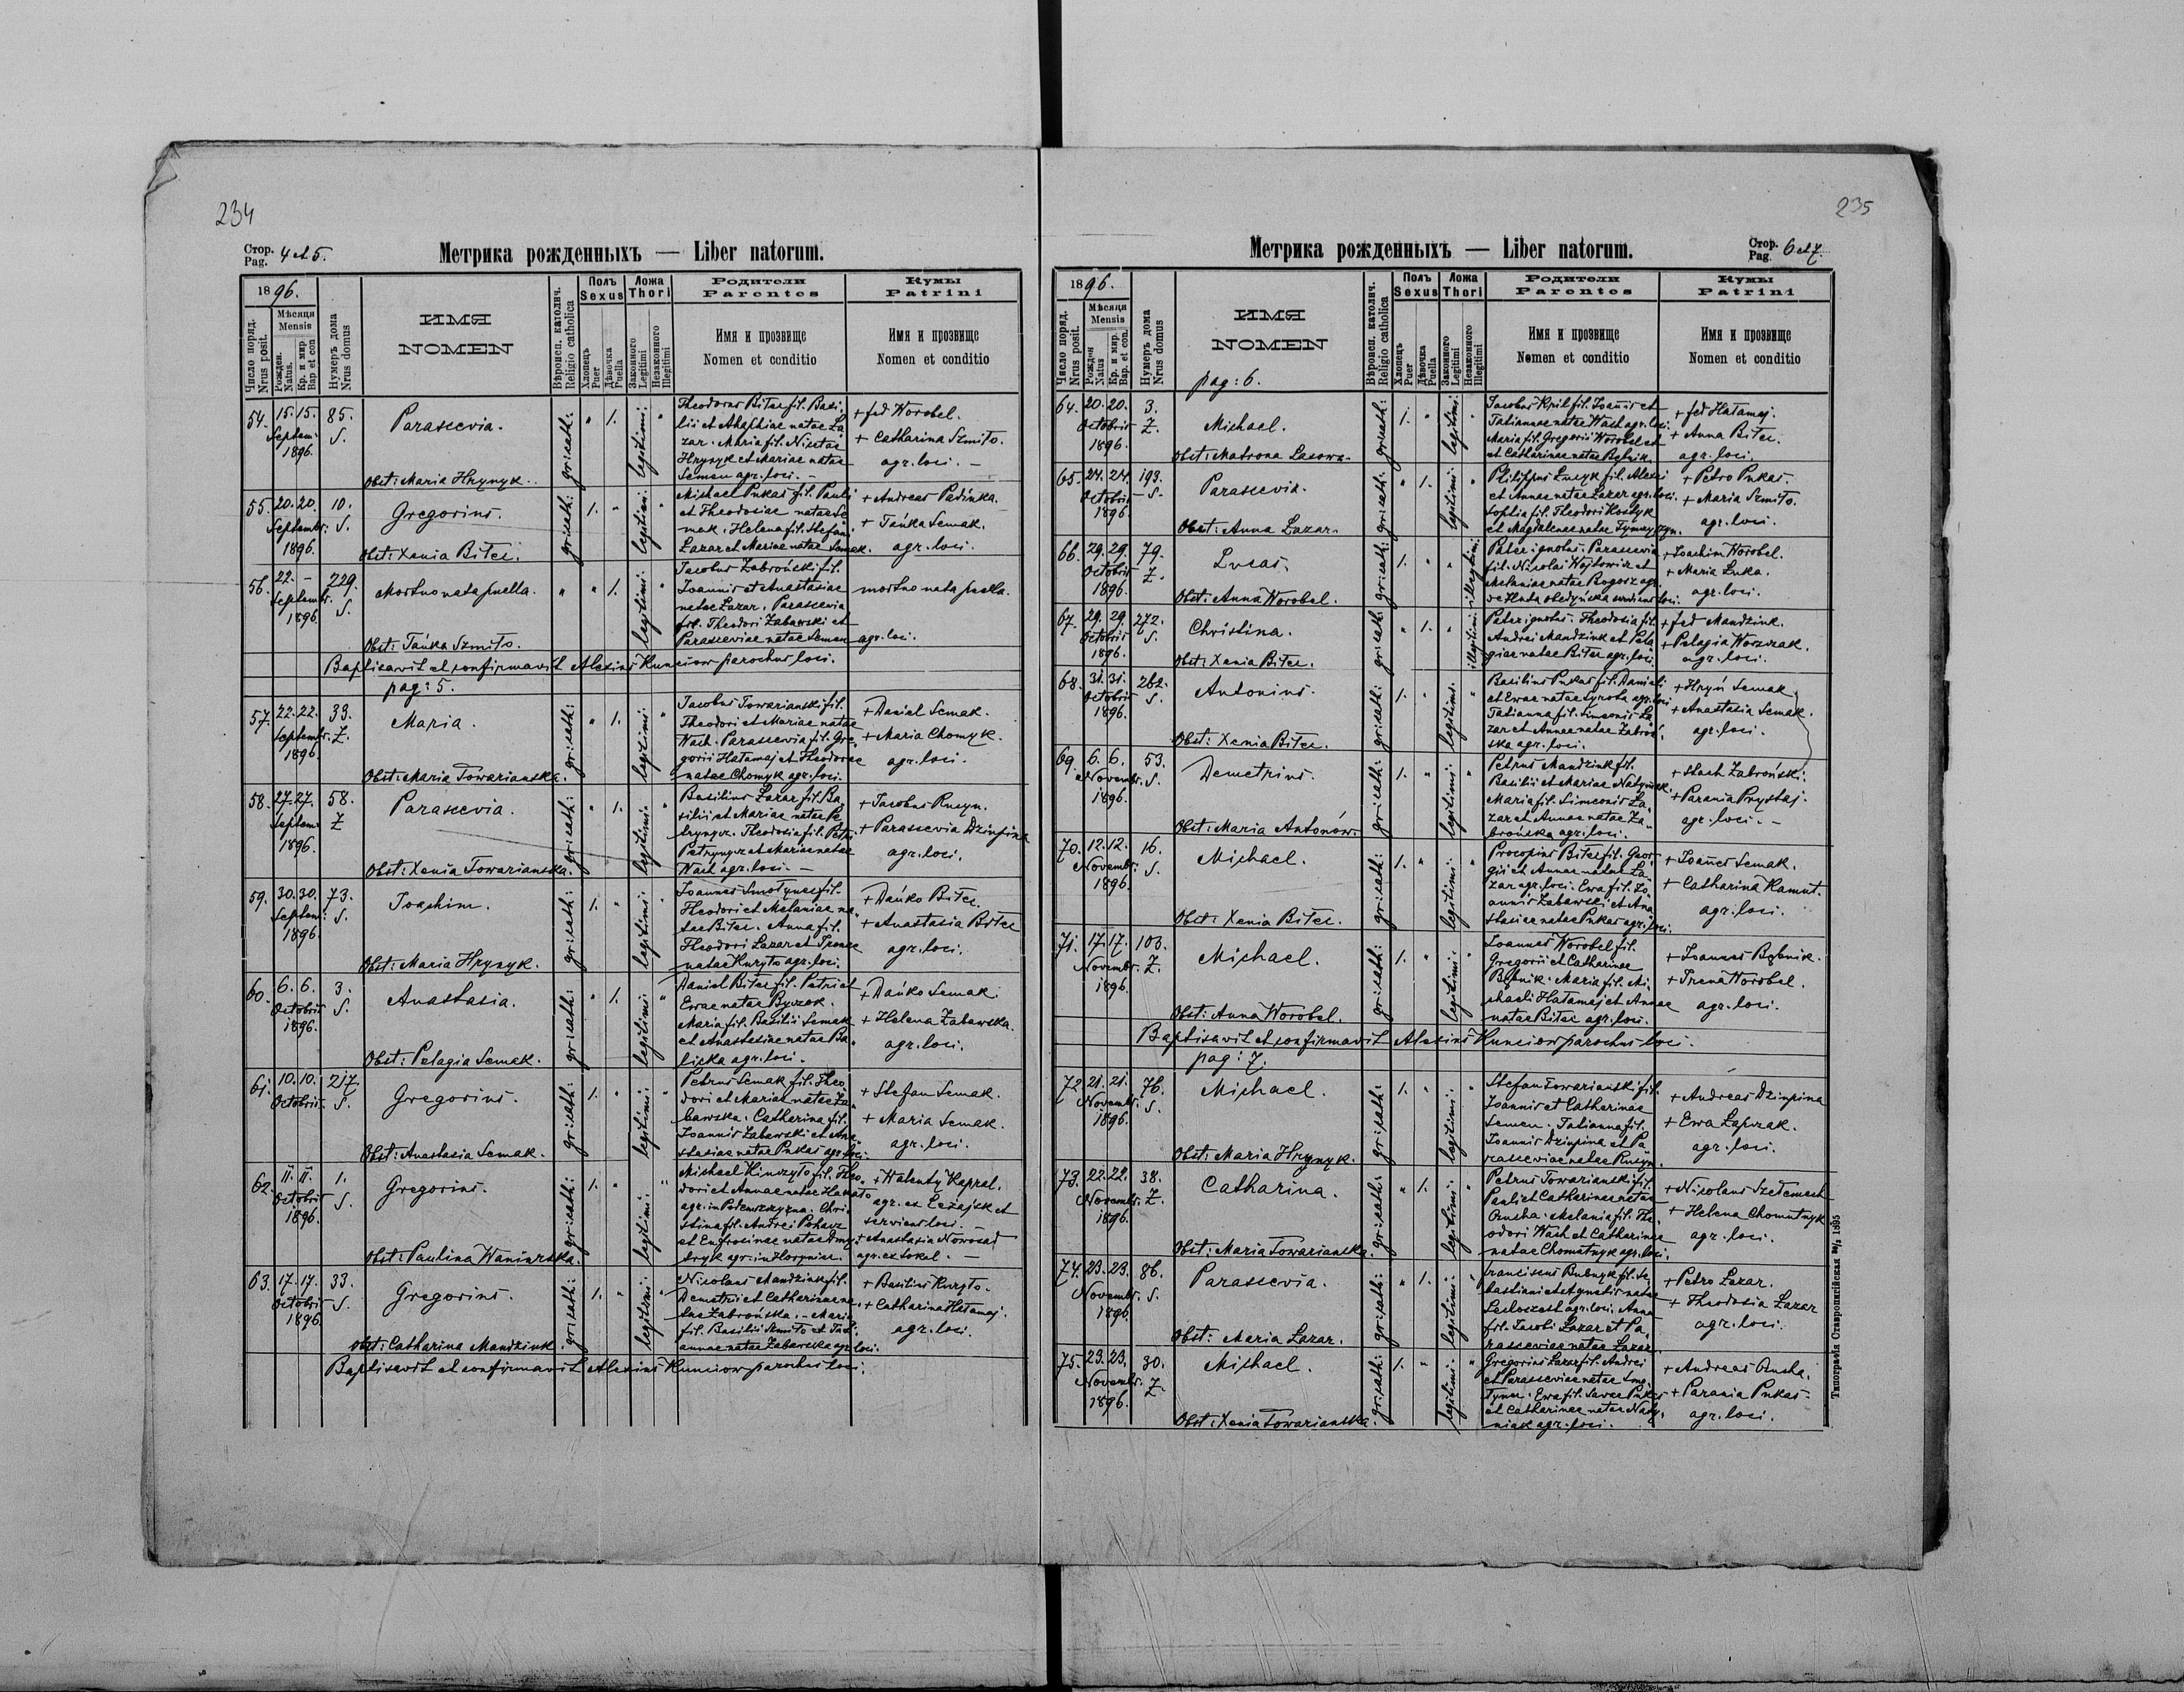 234
Стор. Pag. 4 et 5.
Метрика рожденныхъ — Liber natorum.
1896.
Число поряд. Nrus posit.
Мѣсяця Mensis
Рожден. Natus.
Кр. и мир Bap et con
Нумеръ дома Nrus domus
ИМЯ
NOMEN
Вѣроисп. католич. Religio catholica
Полъ Sexus
Хлопець Puer
Дѣвочка Puella
Ложа Thori
Законного Legitimi
Незаконного Illegitimi
Родители
Parentes
Имя и прозвище
Nomen et conditio
Кумы
Patrini
Имя и прозвище
Nomen et conditio
54. 15. 15. Septem: 1896. 85. S.
Parascevia.
Obst: Maria Hrynyk.
gr: cath: " 1. legitimi: "
Theodorus Biter fil. Basi,
lii et Ahaphiae natae La
zar. Maria fil. Nicetae
Hrynyk et Mariae natae
Semen agr. loci. -
+ fed Worobel.
+ Catharina Szmito.
agr. loci. -
55. 20. 20. Septembr: 1896. 10. S.
Gregorius.
Obst: Xenia Biter.
gr: cath: 1. " legitimi: "
Michael Pukas fil. Pauli
et Theodosiae natae Se
mak. Helena fil. Stefani
Lazar et Mariae natae Semak.
+ Andreas Pedinka.
+ Tańka Semak.
agr. loci.
56. 22. - Septembr. 1896. 229. S.
Mortuo nata puella.
Obst: Tańka Szmito.
" " 1. legitimi: "
Jacobus Zabroński fil.
Joannis et Anastasiae
natae Lazar. Parascevia
fil. Theodori Zabawski et
Parasceviae natae Semen agr. loci.
mortuo nata puella.
Baptisavit et confirmavit Alexius Kunciow parochus loci.
pag: 5.
57. 22. 22. Septembr. 1896. 33. Z.
Maria.
Obst: Maria Towarianska.
gr: cath: " 1. legitimi: "
Jacobus Towarianski fil.
Theodori et Mariae natae
Wach. Parascevia fil. Gre,
gorii Hałamaj et Theodorae
natae Chomyk agr. loci.
+ Daniel Semak.
+ Maria Chomyk.
agr. loci.
58. 27. 27. Septem: 1896. 58. Z
Parascevia.
Obst: Xenia Towarianska.
gr: cath: " 1. legitimi: "
Basilius Lazar fil. Ba,
silii et Mariae natae Pe
Wach agr. loci. -
+ Jacobus Rusyn.
+ Parascevia Dziupina
agr. loci.
59. 30. 30. Septem: 1896. 73. S.
Joachim.
Obst: Maria Hrynyk.
gr: cath: 1. " legitimi: "
Theodori et Melaniae na,
tae Biter. Anna fil.
Theodori Lazar et Irenae
natae Kuryto agr. loci.
+ Dańko Biter.
+ Anastasia Biter
agr. loci.
60. 6. 6. Octobris 1896. 3. S.
Anastasia.
Obst: Pelagia Semak.
gr: cath: " 1. legitimi: "
Daniel Biter fil. Petri et
Ewae natae Byczek.
Maria fil. Basilii Semak
et Anastasiae natae Ba
licka agr. loci.
+ Dańko Semak.
+ Helena Zabawska.
agr. loci.
61. 10. 10. Octobris. 217. S.
Gregorius.
Obst: Anastasia Semak.
gr: cath: 1. " legitimi: "
Petrus Semak fil. Theo,
dori et Mariae natae Za,
bawska. Catharina fil.
Joannis Zabawski et Ana,
stasiae natae Pukas agr. loci.
+ Stefan Semak.
+ Maria Semak.
agr. loci.
62. II. II. Octobris 1896. 1. S.
Gregorius.
Obst: Paulina Waniurska.
gr: cath: 1. " legitimi: "
stina fil. Andrei Pohacz
+ Walenty Kapral.
agr. ex Leżajsk et
serviens loci. -
+ Anastasia Nowosad
agr. ex Sokal. -
63. 17. 17. Octobris 1896. 33. S.
Gregorius.
Obst: Catharina Mandziuk.
gr: cath: 1. " legitimi: "
Nicolaus Mandziuk fil.
Demetrii et Catharinae na,
tae Zabrońska. - Maria
fil. Basilii Szmito et Tati,
annae natae Zabawska agr. loci.
+ Basilius Kuryto.
+ Catharina Hałamaj.
agr. loci.
Baptisavit et confirmavit Alexius Kunciow parochus loci.
235
Метрика рожденныхъ — Liber natorum.
Стор. Pag. 6 et 7.
1896.
Число поряд. Nrus posit.
Мѣсяця Mensis
Рожден Natus
Кр. и мир. Bap. et con.
Нумеръ дома Nrus domus
ИМЯ
NOMEN
pag: 6.
Вѣроисп. католич. Religio catholica
Полъ Sexus
Хлопець Puer
Дѣвочка Puella
Ложа Thori
Законного Legitimi
Незаконного Illegitimi
Родители
Parentes
Имя и прозвище
Nomen et conditio
Кумы
Patrini
Имя и прозвище
Nomen et conditio
64. 20. 20. Octobris 1896. 3. Z.
Michael.
Obst: Matrona Lasowa-
gr: cath: 1. " legitimi: "
Jacobus Kril fil. Joannis et
Tatiannae natae Wach agr. loci.
Maria fil. Gregorii Worobel et
et Catharinae natae Bębnik.
+ fed Hałamaj.
+ Anna Biter.
agr. loci.
65. 24. 24. Octobris 1896. 193. S.
Parascevia.
Obst: Anna Lazar-
gr: cath: " 1. legitimi: "
et Annae natae Lazar agr. loci.
Sophia fil. Theodori Kostyk
+ Petro Pukas.
+ Maria Szmito.
agr. loci.
66. 29. 29. Octobris 1896. 79. Z.
Lucas.
Obst: Anna Worobel.
gr: cath: 1. " " illegitimi:
Pater ignotus. Parascevia
fil. Nicolai Wojtowicz et
+ Joachim Worobel.
+ Maria Luka.
agr. loci.
67. 29. 29. Octobris 1896. 272. S.
Christina.
Obst: Xenia Biter.
gr: cath: " 1. " illegitimi:
Pater ignotus. Theodosia fil.
Andrei Mandziuk et Pela
giae natae Biter agr. loci.
+ fed Mandziuk.
+ Pelagia Woszczak.
agr. loci.
68. 31. 31. Octobris 1896. 262. S.
Antonius.
Obst: Xenia Biter.
gr: cath: 1. " legitimi: "
Basilius Pukas fil. Danieli
et Ewae natae Syrota agr. loci
Tatianna fil. Simeonis La
zar et Annae natae Zabroń,
ska agr. loci.
+ Hryń Semak.
+ Anastasia Semak.
agr. loci.
69. 6. 6. Novembr. 1896. 53. S.
Demetrius.
Obst: Maria Antonów.
gr: cath: 1. " legitimi: "
Petrus Mandziuk fil.
Basilii et Mariae Natyniak.
Maria fil. Simeonis La,
zar et Annae natae Za,
brońska agr. loci.
+ Stach Zabroński.
+ Parania Prystaj.
agr. loci. -
70. 12. 12. Novembr. 1896. 16. S.
Michael.
Obst: Xenia Biter.
gr: cath: 1. " legitimi: "
Procopius Biter fil. Geor,
gii et Annae natae La,
zar agr. loci. Ewa fil. Jo,
annis Zabawski et Ana
stasiae natae Pukas agr. loci.
+ Joannes Semak.
+ Catharina Kamut.
agr. loci.
71. 17. 17. Novembr. 1896. 103. Z.
Michael.
Obst: Anna Worobel.
gr: cath: 1. " legitimi: "
Joannes Worobel fil.
Gregorii et Catharinae
Bębnik. Maria fil. Mi,
chaeli Hałamaj et Annae
natae Biter agr. loci.
+ Joannes Bębnik.
+ Irena Worobel.
agr. loci.
Baptisavit et confirmavit Alexius Kunciow parochus loci.
pag: 7.
72. 21. 21. Novembr. 1896. 76. S.
Michael.
Obst: Maria Hrynyk.
gr: cath: 1. " legitimi: "
Stefan Towarianski fil.
Joannis et Catharinae
Semen. Tatianna fil.
Joannis Dziupina et Pa
rasceviae natae Rusyn.
+ Andreas Dziupina
+ Ewa Łapczak.
agr. loci.
73. 22. 22. Novembr. 1896. 38. Z.
Catharina.
Obst: Maria Towarianska.
gr: cath: " 1. legitimi: "
Petrus Towarianski fil.
Pauli et Catharinae natae
Onucha. Melania fil. The,
odori Wach et Catharinae
natae Chomutnyk agr. loci.
+ Nicolaus Szełemech
+ Helena Chomutnyk
agr. loci.
74. 23. 23. Novembr. 1896. 86. S.
Parascevia.
Obst: Maria Lazar.
gr: cath: " 1. legitimi: "
franciscus Bubnyk fil. Se,
fil. Jacobi Lazar et Pa,
rasceviae natae Lazar.
+ Petro Lazar.
+ Theodosia Lazar
agr. loci.
75. 23. 23. Novembr. 1896. 30. Z.
Michael.
Obst: Xenia Towarianska.
gr: cath: 1. " legitimi: "
Gregorius Lazar fil. Andrei
et Catharinae natae Naty,
niak agr. loci.
+ Andreas Onucha.
+ Parania Pukas-
agr. loci.
Типографія Ставропигійская 1895